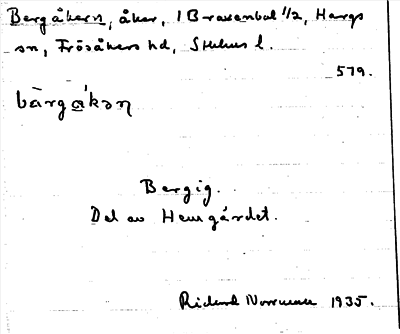 Bergåkern, åker, 1 Braxenbol 1/2, Hargs
sn, Frösåkers hd, Sthlms l.
579.
bärgåkən
Bergig.
Del av Hemgärdet.
Rickard 1935.